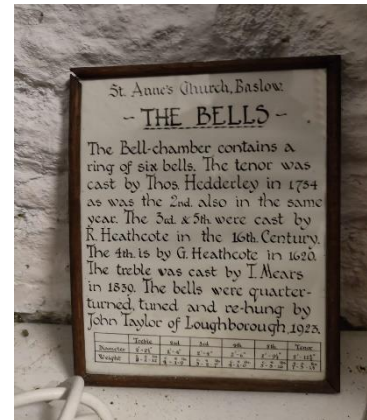 St. Anne's Church, Baslow.
- THE BELLS -
The Bell-chamber contains a
ring of six bells. The tenor was
cast by Thos. Hedderley in 1754
as was the 2nd. also in the same
year. The 3rd. & 5th were cast by
R. Heathcote in the 16th. Century.
The 4th. is by G. Heathcote in 1620.
The treble was cast by T. Mears
in 1839. The bells were quarter-
turned, tuned and re-hung by
John Taylor of Loughborough, 1923.
Treble 2nd 3rd 4th 5th Tenor
Diameter
Weight